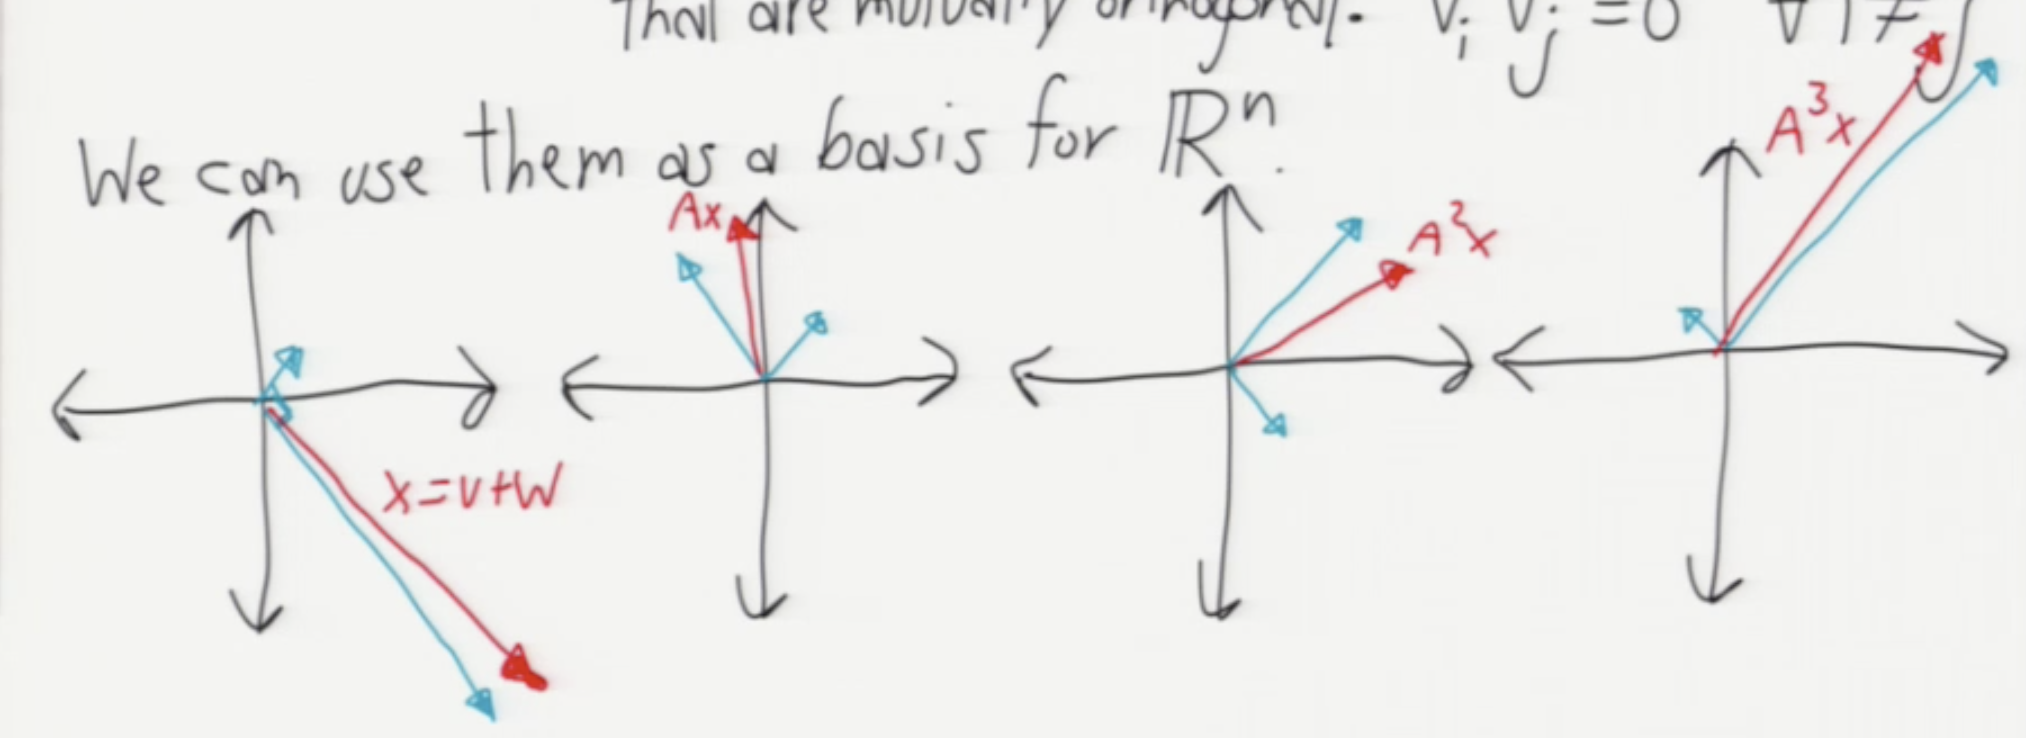 that are mutually orthogonal. vᵢ vⱼ = 0 ∀ i ≠ j
We can use them as a basis for ℝⁿ.
x=v+w
Ax
A²x
A³x